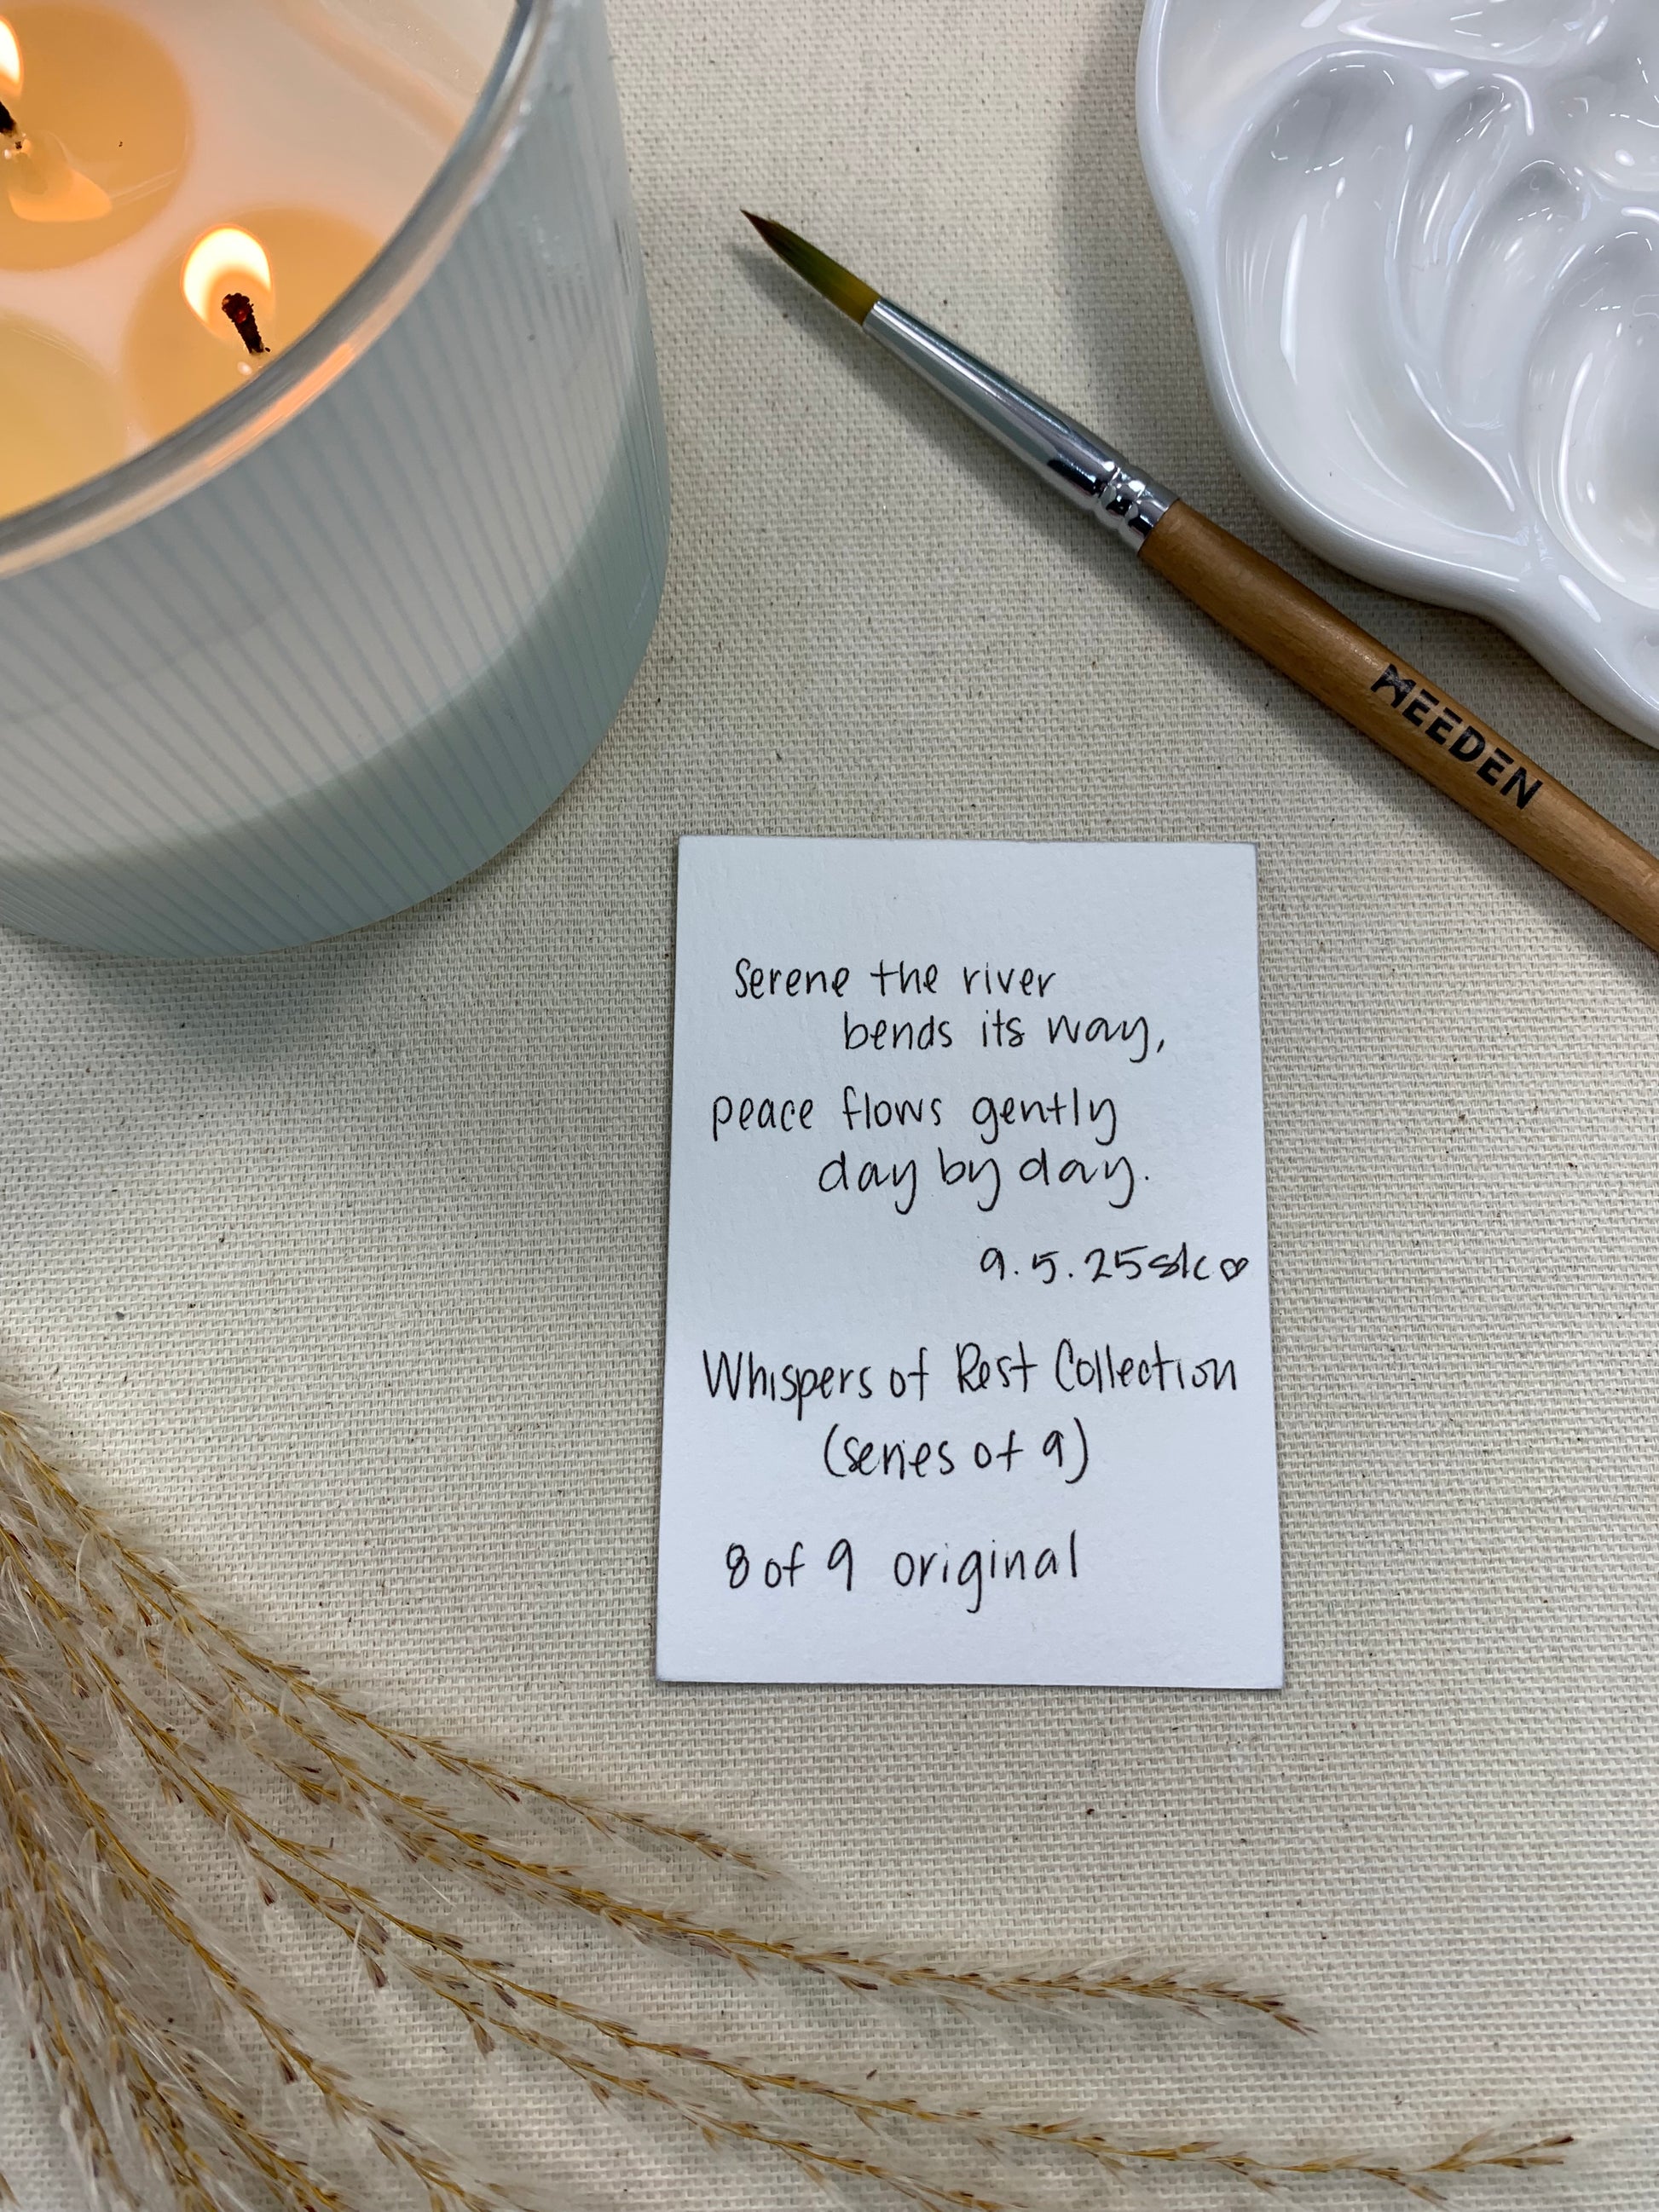 MEEDEN
Serene the river
bends its way,
peace flows gently
day by day.
9.5.25 slc♡
Whispers of Rest Collection
(series of 9)
8 of 9 original